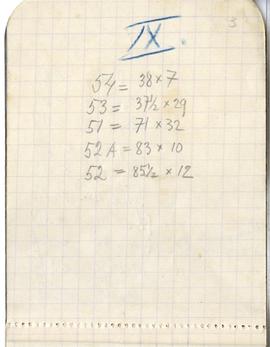 3
IX.
54 = 38 × 7
53 = 37½ × 29
51 = 71 × 32
52 A = 83 × 10
52 = 85½ × 12